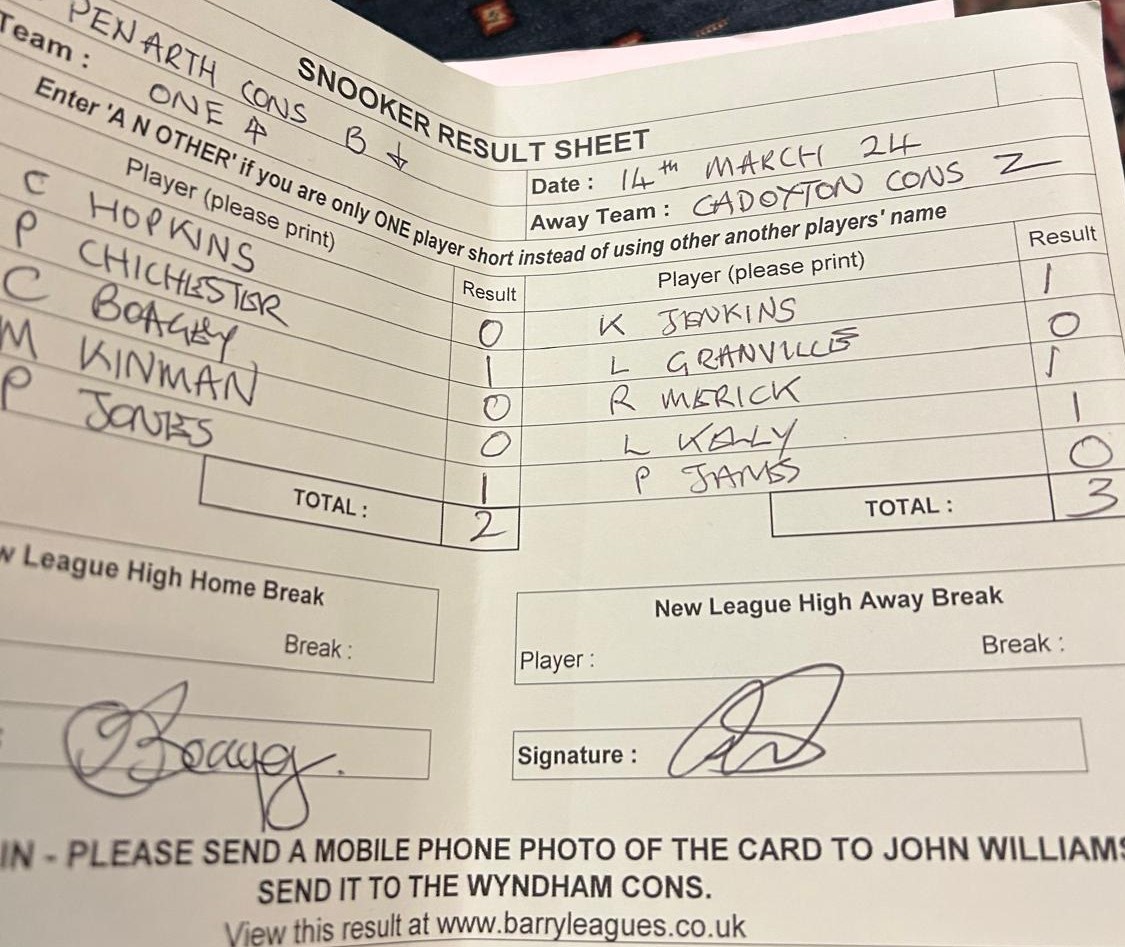 SNOOKER RESULT SHEET
PENARTH CONS B ↓
Team : ONE ↑
Date : 14th MARCH 24
Away Team : CADOXTON CONS Z
Enter 'A N OTHER' if you are only ONE player short instead of using other another players' name
Player (please print) Result Player (please print) Result
C HOPKINS 0 K JENKINS 1
P CHICHESTER 1 L GRANVILLE 0
C BOAGEY 0 R MERICK 1
M KINMAN 0 L KELLY 1
P JONES 1 P JAMES 0
TOTAL : 2 TOTAL : 3
w League High Home Break New League High Away Break
Break : Player : Break :
Signature :
IN - PLEASE SEND A MOBILE PHONE PHOTO OF THE CARD TO JOHN WILLIAMS
SEND IT TO THE WYNDHAM CONS.
View this result at www.barryleagues.co.uk